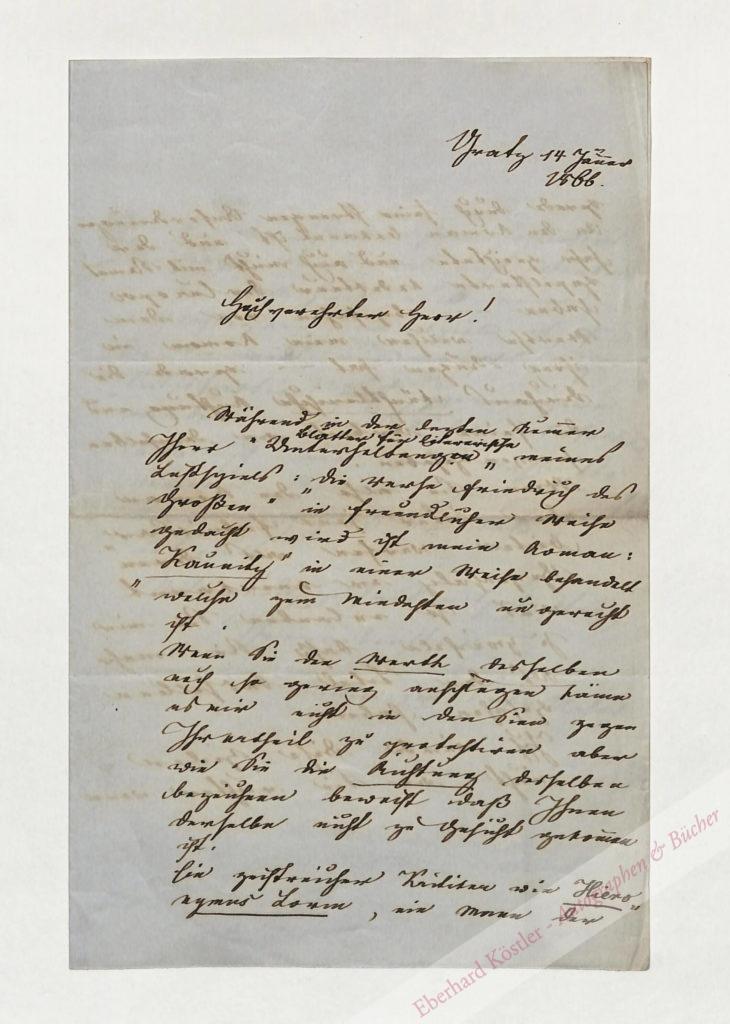 Gratz 14 Jänner
1866.
Hochverehrter Herr!
Während in der lezten Nummer
Ihrer "Blätter für literarische
Unterhaltung" meines
Lustspiels: "die Verse Friedrich des
Großen" in freundlicher Weise
gedacht wird ist mein Roman:
"Kaunitz" in einer Weise behandelt
welche zum Mindesten ungerecht
ist.
Wenn Sie den Werth desselben
noch so gering anschlügen käme
es mir nicht in den Sinn gegen
Ihr Urtheil zu protestiren aber
wie Sie die Richtung desselben
bezeichnen beweist daß Ihnen
derselbe nicht zu Gesicht gekommen
ist.
Ein geistreicher Kritiker wie Hiero-
nymus Lorm, ein Mann der
Eberhard Köstler - Autographen & Bücher